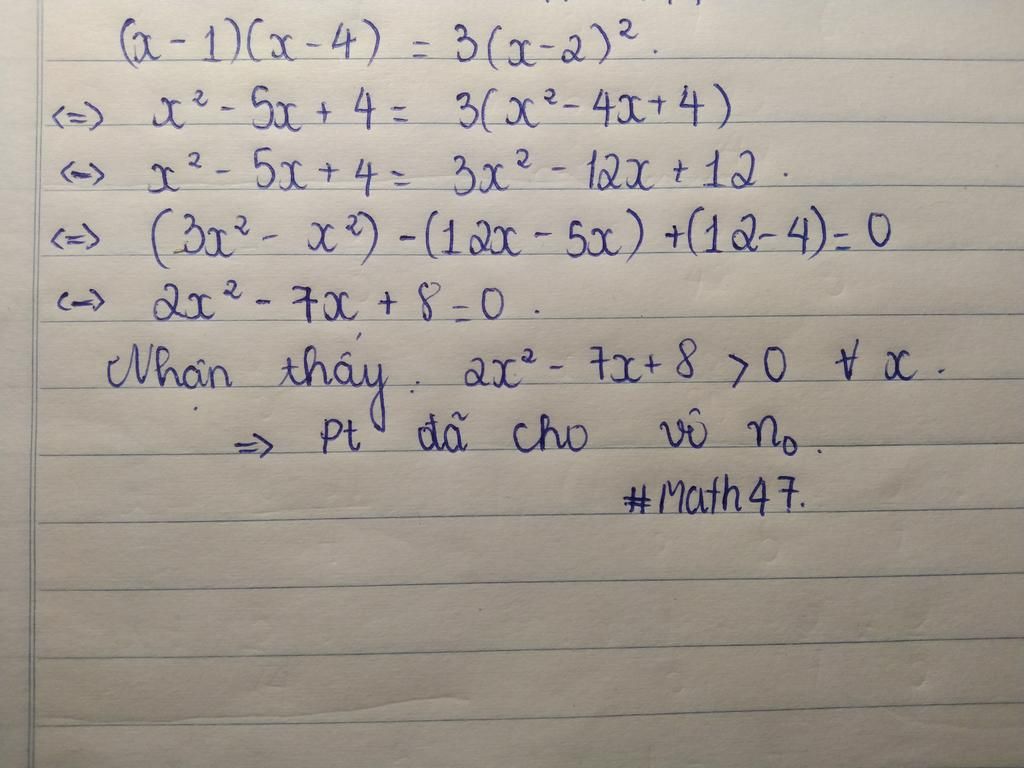 (x - 1)(x - 4) = 3(x - 2)².
<=> x² - 5x + 4 = 3(x² - 4x + 4)
<=> x² - 5x + 4 = 3x² - 12x + 12.
<=> (3x² - x²) - (12x - 5x) + (12 - 4) = 0
<=> 2x² - 7x + 8 = 0.
Nhân thấy. 2x² - 7x + 8 > 0 ∀ x.
=> Pt đã cho vô n₀.
#Math47.